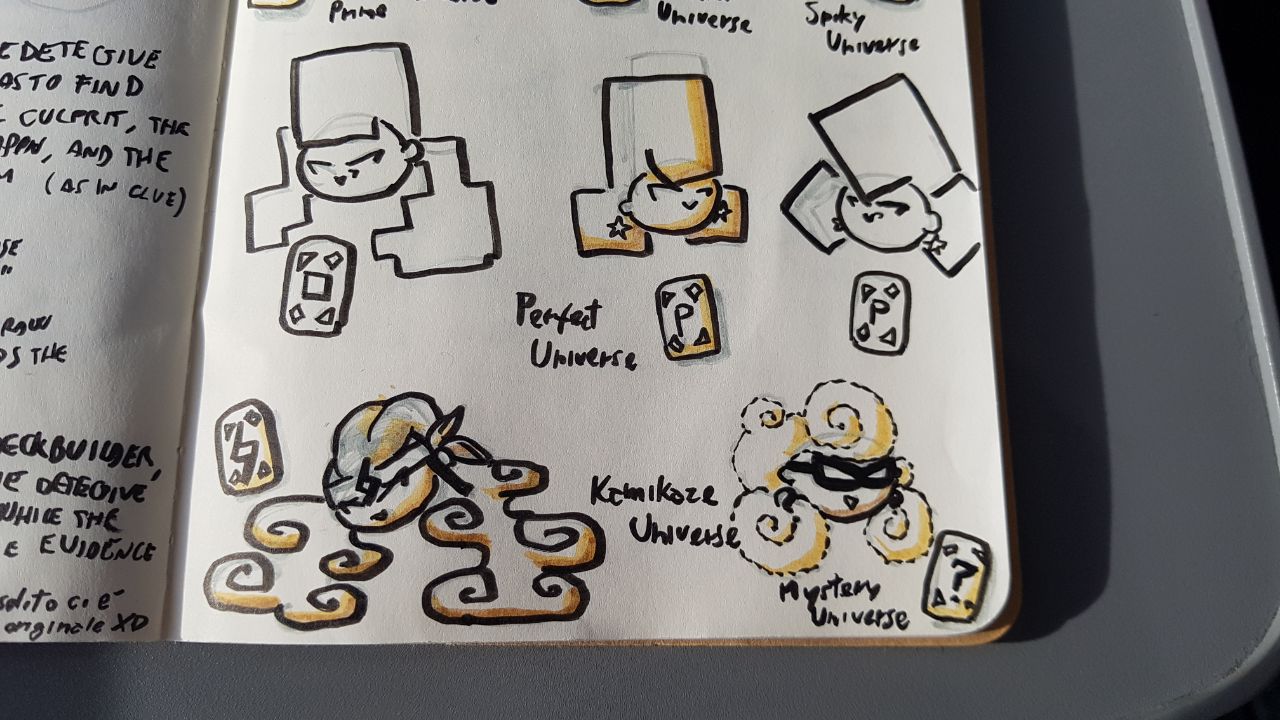 E DETECTIVE
AS TO FIND
CULPRIT, THE
AND THE
M (AS IN CLUE)
SE
"
RAW
DS THE
DECKBUILDER,
E DETECTIVE
WHILE THE
E EVIDENCE
solito c'è
originale XD
Prime
Universe
Spiky
Universe
Perfect
Universe
P
P
Kamikaze
Universe
Mystery
Universe
?